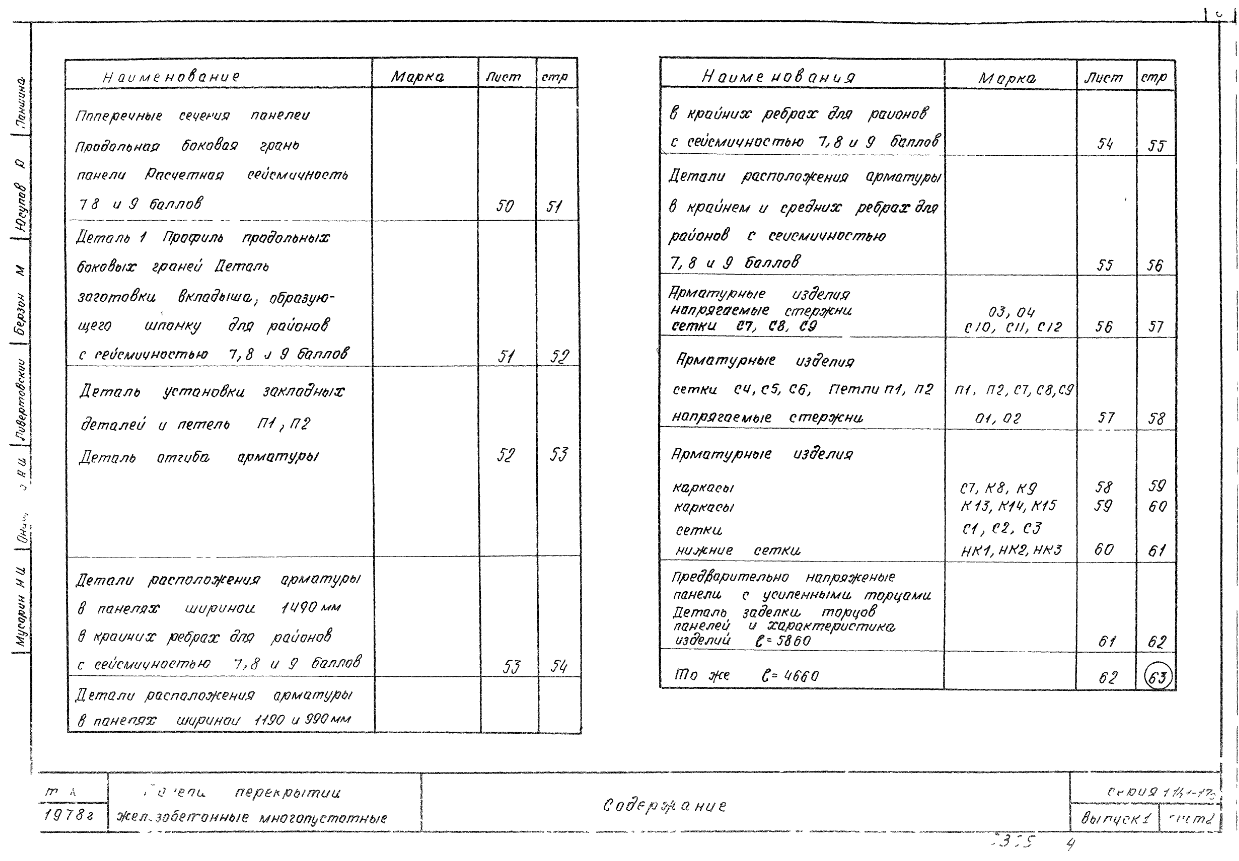 Наименование Марка Лист стр
Поперечные сечения панелей
Продольная боковая грань
панели Расчетная сейсмичность
7 8 и 9 баллов 50 51
Деталь 1 Профиль продольных
боковых граней Деталь
заготовки вкладыша, образую-
щего шпонку для районов
с сейсмичностью 7, 8 и 9 баллов 51 52
Деталь установки закладных
деталей и петель П1, П2
Деталь отгиба арматуры 52 53
Детали расположения арматуры
в панелях шириной 1490 мм
в крайних ребрах для районов
с сейсмичностью 7, 8 и 9 баллов 53 54
Детали расположения арматуры
в панелях шириной 1190 и 990 мм
Наименования Марка Лист стр
в крайних ребрах для районов
с сейсмичностью 7, 8 и 9 баллов 54 55
Детали расположения арматуры
в крайнем и средних ребрах для
районов с сейсмичностью
7, 8 и 9 баллов 55 56
Арматурные изделия
напрягаемые стержни О3, О4
сетки С7, С8, С9 С10, С11, С12 56 57
Арматурные изделия
сетки С4, С5, С6, Петли П1, П2 П1, П2, С7, С8, С9
напрягаемые стержни О1, О2 57 58
Арматурные изделия
каркасы С7, К8, К9 58 59
каркасы К13, К14, К15 59 60
сетки С1, С2, С3
нижние сетки НК1, НК2, НК3 60 61
Предварительно напряженые
панели с усиленными торцами
Деталь заделки торцов
панелей и характеристика
изделий ℓ= 5860 61 62
То же ℓ= 4660 62 63
Мусорин Н Ш
Ливертовский
Берзон М
Юсупов Р
Лапшина
1978г
Панели перекрытий
железобетонные многопустотные
Содержание
серия
выпуск 1 лист 2
4